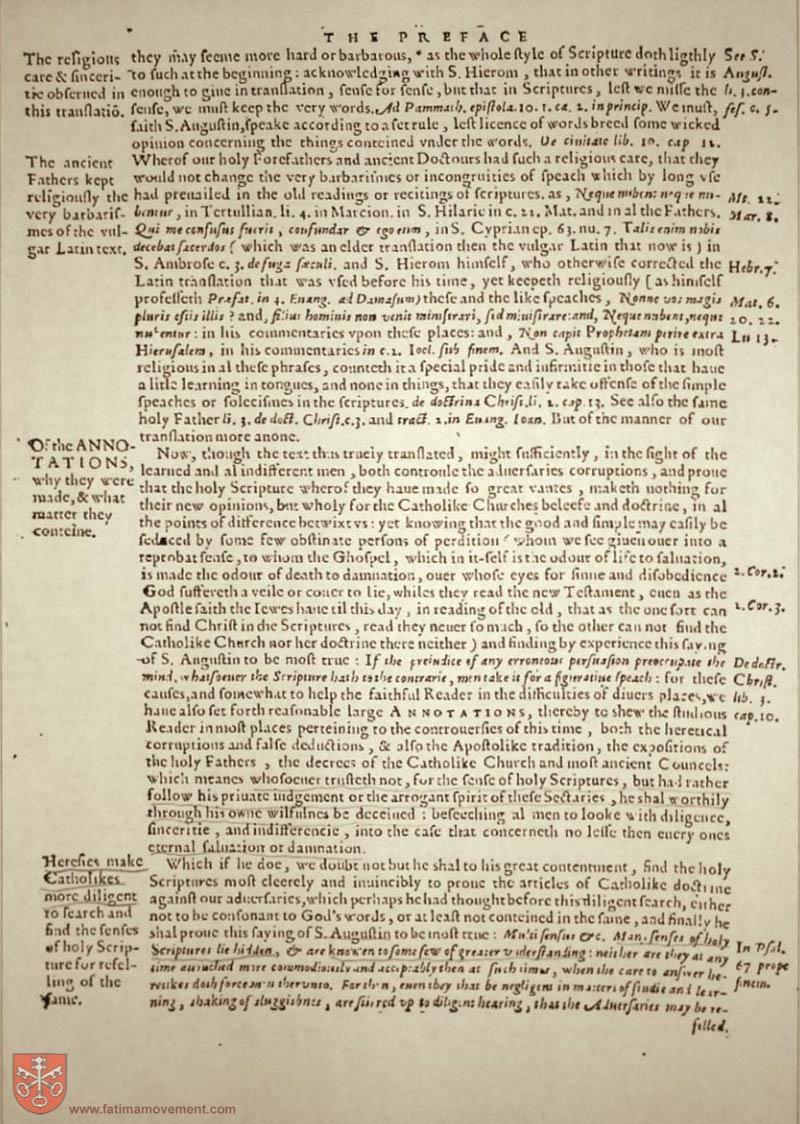 THE PREFACE
The religious
care & sinceri-
tie obserued in
this translatiō.
they may seeme more hard or barbarous, * as the whole style of Scripture doth ligthly
to such at the beginning: acknowledging with S. Hierom, that in other writings it is
enough to giue in translation, sense for sense, but that in Scriptures, lest we misse the
sense, we must keep the very words. Ad Pammach. epistola. 10. 1. ca. 2. in princip. We must,
saith S. Augustin, speake according to a set rule, lest licence of words breed some wicked
opinion concerning the things conteined vnder the words. De ciuitate lib. 10. cap 12.
See S.
August.
li. 3. con-
fes. c. 5.
The ancient
Fathers kept
religiously the
very barbaris-
mes of the vul-
gar Latin text.
Wherof our holy Forefathers and ancient Doctours had such a religious care, that they
would not change the very barbarismes or incongruities of speach which by long vse
had preuailed in the old readings or recitings of scriptures. as, Neque nubent neque nu-
bentur, in Tertullian. li. 4. in Marcion. in S. Hilarie in c. 22. Mat. and in al the Fathers.
Qui me confusus fuerit, confundar & ego eum, in S. Cyprian ep. 63. nu. 7. Talis enim nobis
decebat sacerdos (which was an elder translation then the vulgar Latin that now is) in
S. Ambrose c. 3. de fuga sæculi. and S. Hierom himself, who otherwise corrected the
Latin translation that was vsed before his time, yet keepeth religiously [as himself
professeth Præfat. in 4. Euang. ad Damasum) these and the like speaches, Nonne vos magis
pluris estis illis? and, filius hominis non venit ministrari, sed ministrare: and, Neque nubent, neque
nubentur: in his commentaries vpon these places: and, Non capit Prophetam perire extra
Hierusalem, in his commentaries in c. 2. Ioel. sub finem. And S. Augustin, who is most
religious in al these phrases, counteth it a special pride and infirmitie in those that haue
a litle learning in tongues, and none in things, that they easily take offense of the simple
speaches or solecismes in the scriptures. de doctrina Christ. li. 2. cap 13. See also the same
holy Father li. 3. de doct. Christ. c. 3. and tract. 2. in Euang. Ioan. But of the manner of our
translation more anone.
Mt. 22.
Mar. 8.
Hebr. 7.
Mat. 6.
20. 22.
Lu 13.
Of the ANNO-
TATIONS,
why they were
made, & what
matter they
conteine.
Now, though the text thus truely translated, might sufficiently, in the sight of the
learned and al indifferent men, both controule the aduersaries corruptions, and proue
that the holy Scripture wherof they haue made so great vantes, maketh nothing for
their new opinions, but wholy for the Catholike Churches beleefe and doctrine, in al
the points of difference betwixt vs: yet knowing that the good and simple may easily be
seduced by some few obstinate persons of perdition (whom we see giuen ouer into a
reprobat sense, to whom the Ghospel, which in it-self is the odour of life to saluation,
is made the odour of death to damnation, ouer whose eyes for sinne and disobedience
God suffereth a veile or couer to lie, whiles they read the new Testament, euen as the
Apostle saith the Iewes haue til this day, in reading of the old, that as the one sort can
not find Christ in the Scriptures, read they neuer so much, so the other can not find the
Catholike Church nor her doctrine there neither) and finding by experience this saying
of S. Augustin to be most true: If the preiudice of any erroneous persuasion preoccupate the
mind, whatsoeuer the Scripture hath to the contrarie, men take it for a figuratiue speach: for these
causes, and somewhat to help the faithful Reader in the difficulties of diuers places, we
haue also set forth reasonable large ANNOTATIONS, thereby to shew the studious
Reader in most places perteining to the controuersies of this time, both the heretical
corruptions and false deductions, & also the Apostolike tradition, the expositions of
the holy Fathers, the decrees of the Catholike Church and most ancient Councels:
which meanes whosoeuer trusteth not, for the sense of holy Scriptures, but had rather
follow his priuate iudgement or the arrogant spirit of these Sectaries, he shal worthily
through his owne wilfulnes be deceiued: beseeching al men to looke with diligence,
sinceritie, and indifferencie, into the case that concerneth no lesse then euery ones
eternal saluation or damnation.
2. Cor. 2.
2. Cor. 3.
De doctr.
Christ.
lib. 3.
cap. 10.
Heresies make
Catholikes
more diligent
to search and
find the senses
of holy Scrip-
ture for refel-
ling of the
same.
Which if he doe, we doubt not but he shal to his great contentment, find the holy
Scriptures most cleerely and inuincibly to proue the articles of Catholike doctrine
against our aduersaries, which perhaps he had thought before this diligent search, either
not to be consonant to God's words, or at least not conteined in the same, and finally he
shal proue this saying of S. Augustin to be most true: Multi sensus &c. Many senses of holy
Scriptures lie hidden, & are knowen to some few of greater vnderstanding: neither are they at any
time auouched more commodiously and acceptably then at such times, when the care to answer he-
retikes doth force men therunto. For then, euen they that be negligent in matters of studie and lear-
ning, shaking of sluggishnes, are stirred vp to diligent hearing, that the Aduersaries may be re-
felled.
In Psal.
67 prope
finem.
www.fatimamovement.com